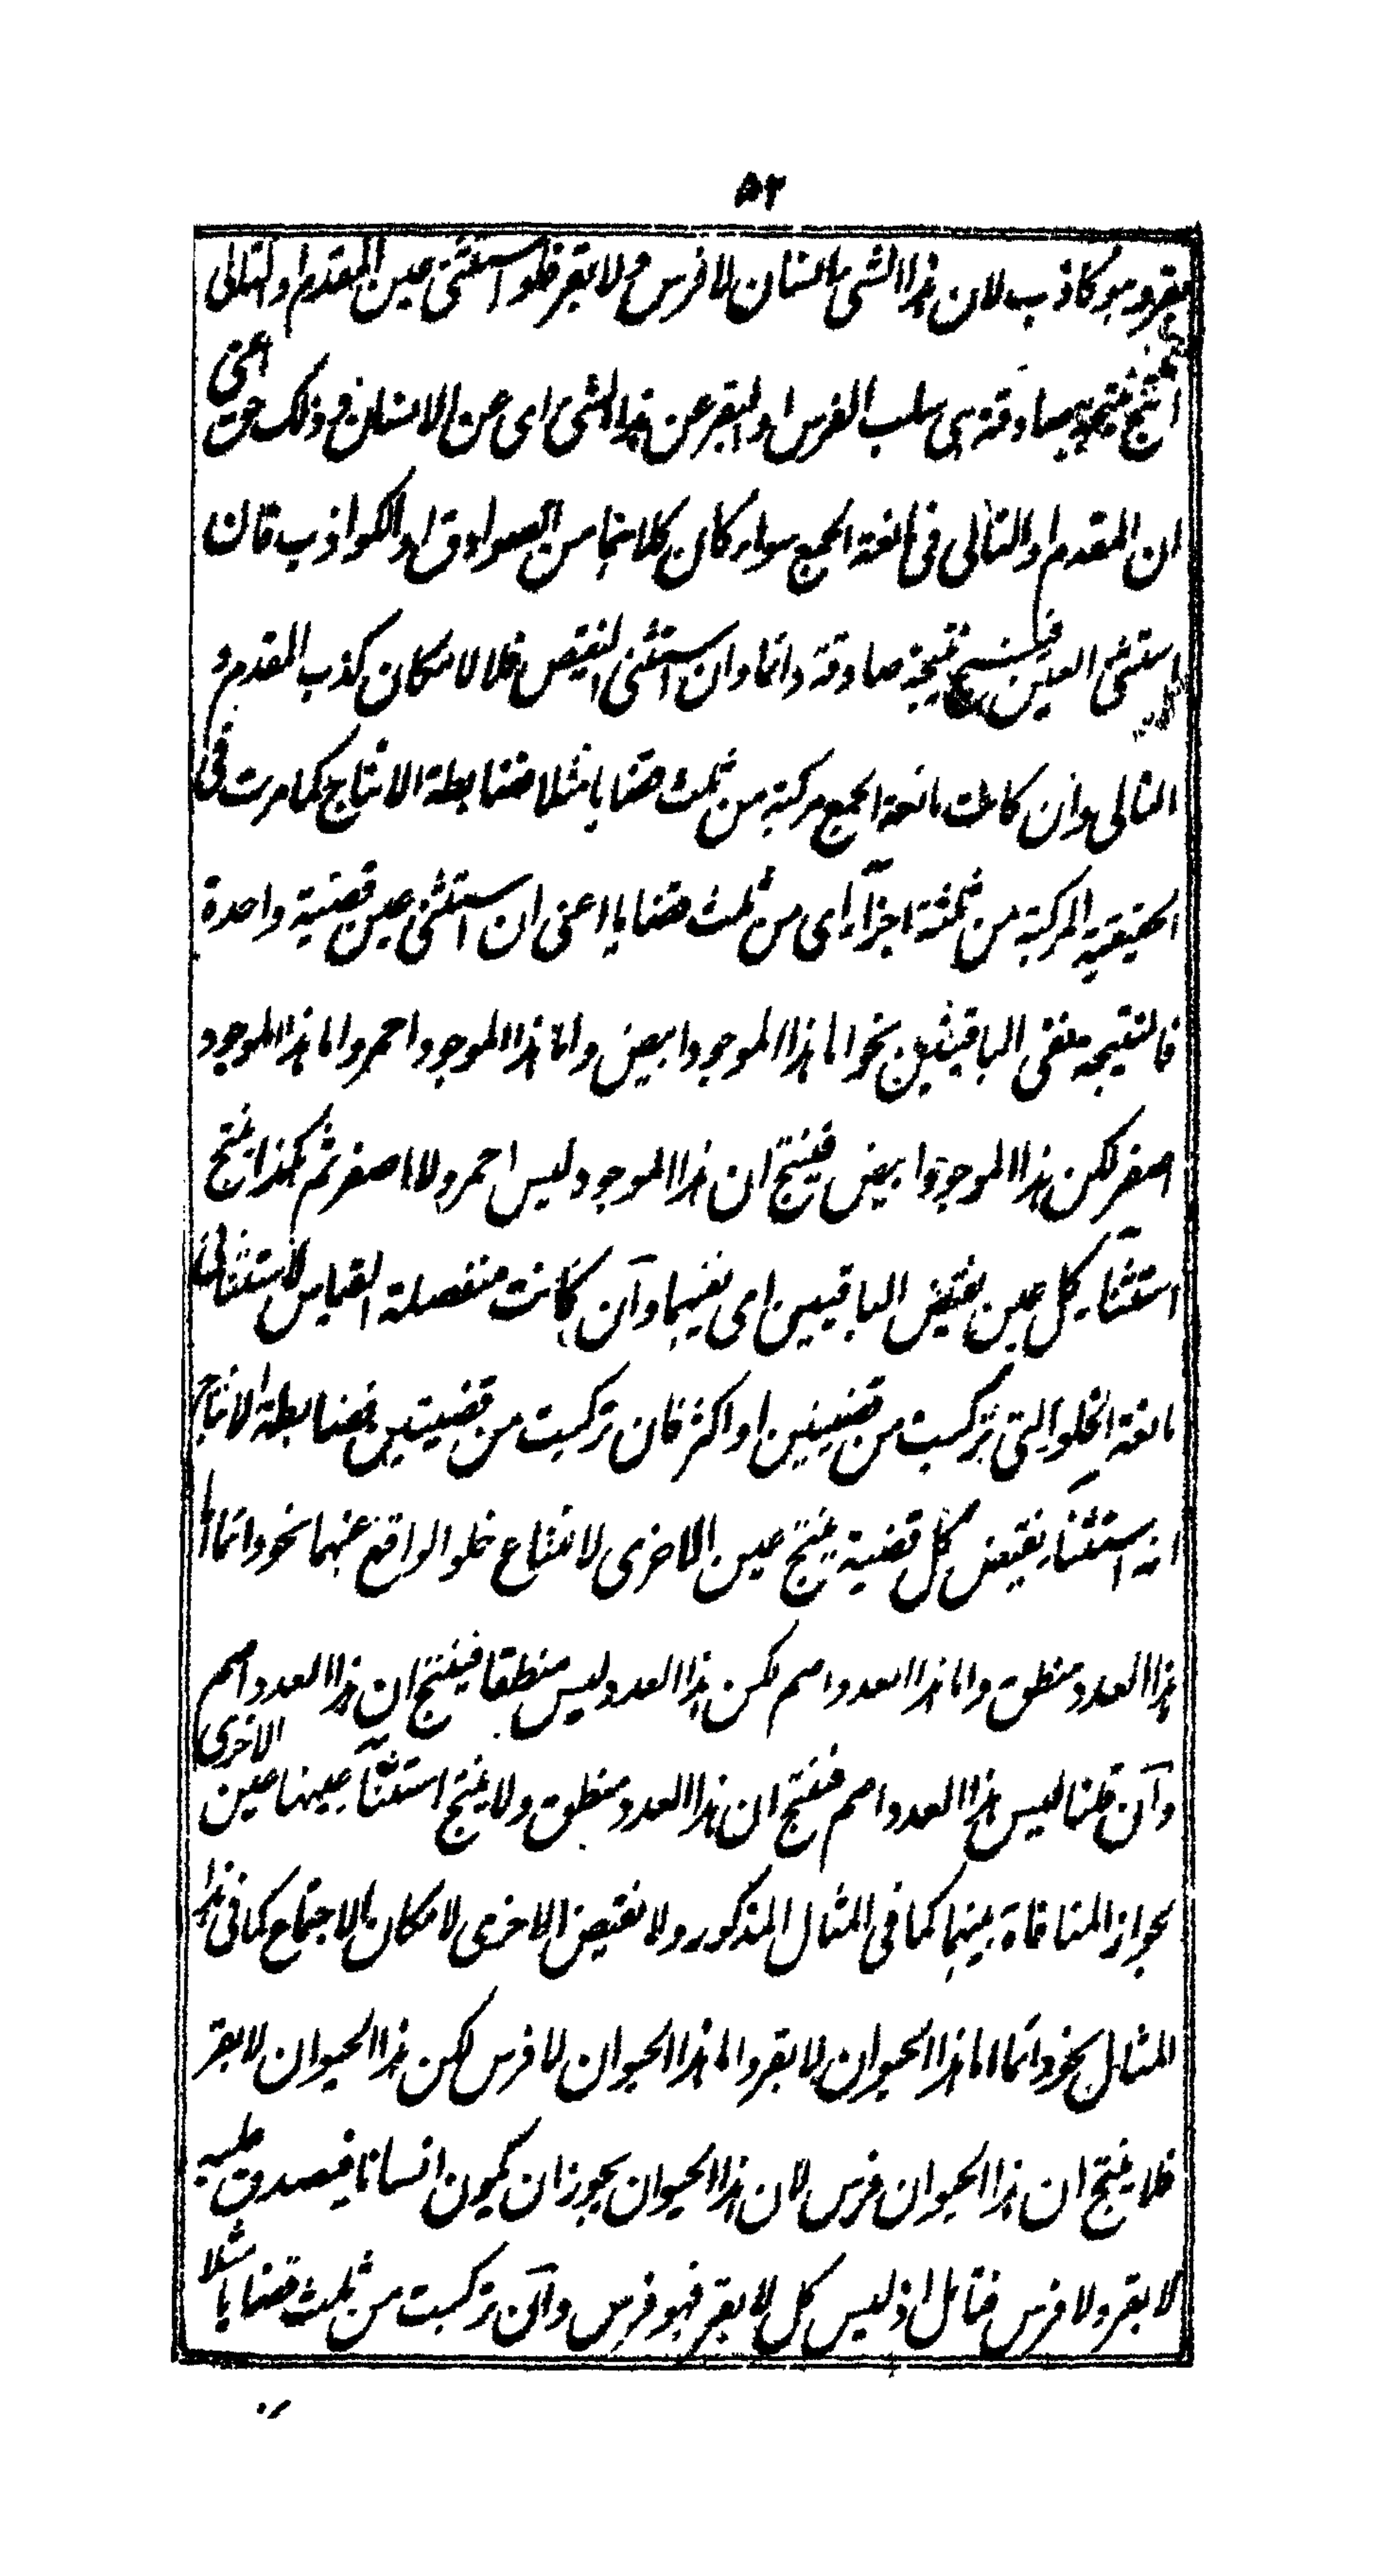 ۵۲
بقر وهو كاذب لان هذا الشئ بالسان لا فرس ولا بقر فلو استثنى عين المقدم او التالى
انتج نتيجة صادقة هى سلب الفرس او البقر عن هذا الشئ اى عن الانسان وذلك حق اعنى
ان المقدم او التالى فى مانعة الجمع سواء كان كلاهما من الصوادق او الكواذب فان
استثنى العين فينتج نتيجة صادقة دائما وان استثنى النقيض فلا لامكان كذب المقدم و
التالى وان كانت مانعة الجمع مركبة من ثلث قضايا مثلا فضابطة الانتاج كما مرت فى
الحقيقية المركبة من ثلثة اجزاء اى من ثلث قضايا اعنى ان استثنى عين قضية واحدة
فالنتيجة نفى الباقيتين نحو اما هذا الموجود ابيض واما هذا الموجود احمر واما هذا الموجود
اصفر لكن هذا الموجود ابيض فينتج ان هذا الموجود ليس احمر ولا اصفر ثم هكذا ينتج
استثناء كل عين نقيض الباقيين اى نفيهما وآن كانت منفصلة القياس الاستثنائى
مانعة الخلو التى تركبت من قضيتين او اكثر فان تركبت من قضيتين فضابطة الانتاج
انه استثناء نقيض كل قضية ينتج عين الاخرى لامتناع خلو الواقع عنهما نحو دائما اما
هذا العدد منطق واما هذا العدد اصم لكن هذا العدد ليس منطقا فينتج ان هذا العدد اصم
وآن قلنا ليس هذا العدد اصم فينتج ان هذا العدد منطق ولا ينتج استثناء عينها عين الاخرى
بجواز المنافاة بينهما كما فى المثال المذكور ولا نقيض الاخرى لامكان الاجتماع كما فى هذا
المثال نحو دائما اما هذا الحيوان لا بقر واما هذا الحيوان لا فرس لكن هذا الحيوان لا بقر
فلا ينتج ان هذا الحيوان فرس لان هذا الحيوان يجوز ان يكون انسانا فيصدق عليه
لا بقر ولا فرس فتامل اذ ليس كل لا بقر فهو فرس وآن تركبت من ثلث قضايا مثلا